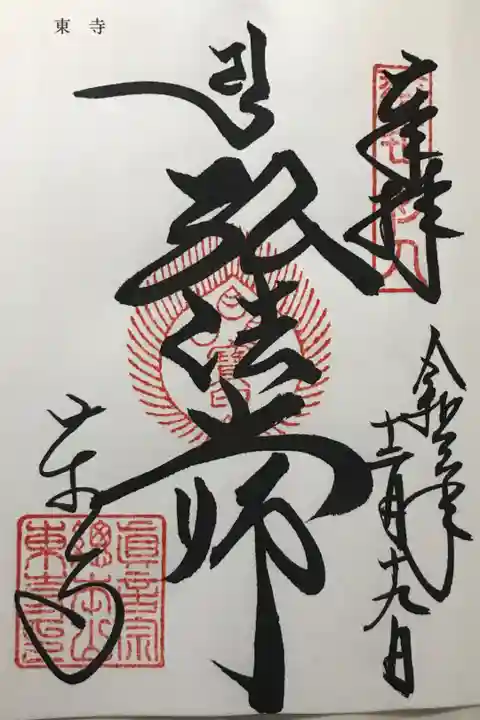 東寺
奉拝
令和三年
十二月十九日
弘法大師
東寺
真言宗
總本山
東寺印